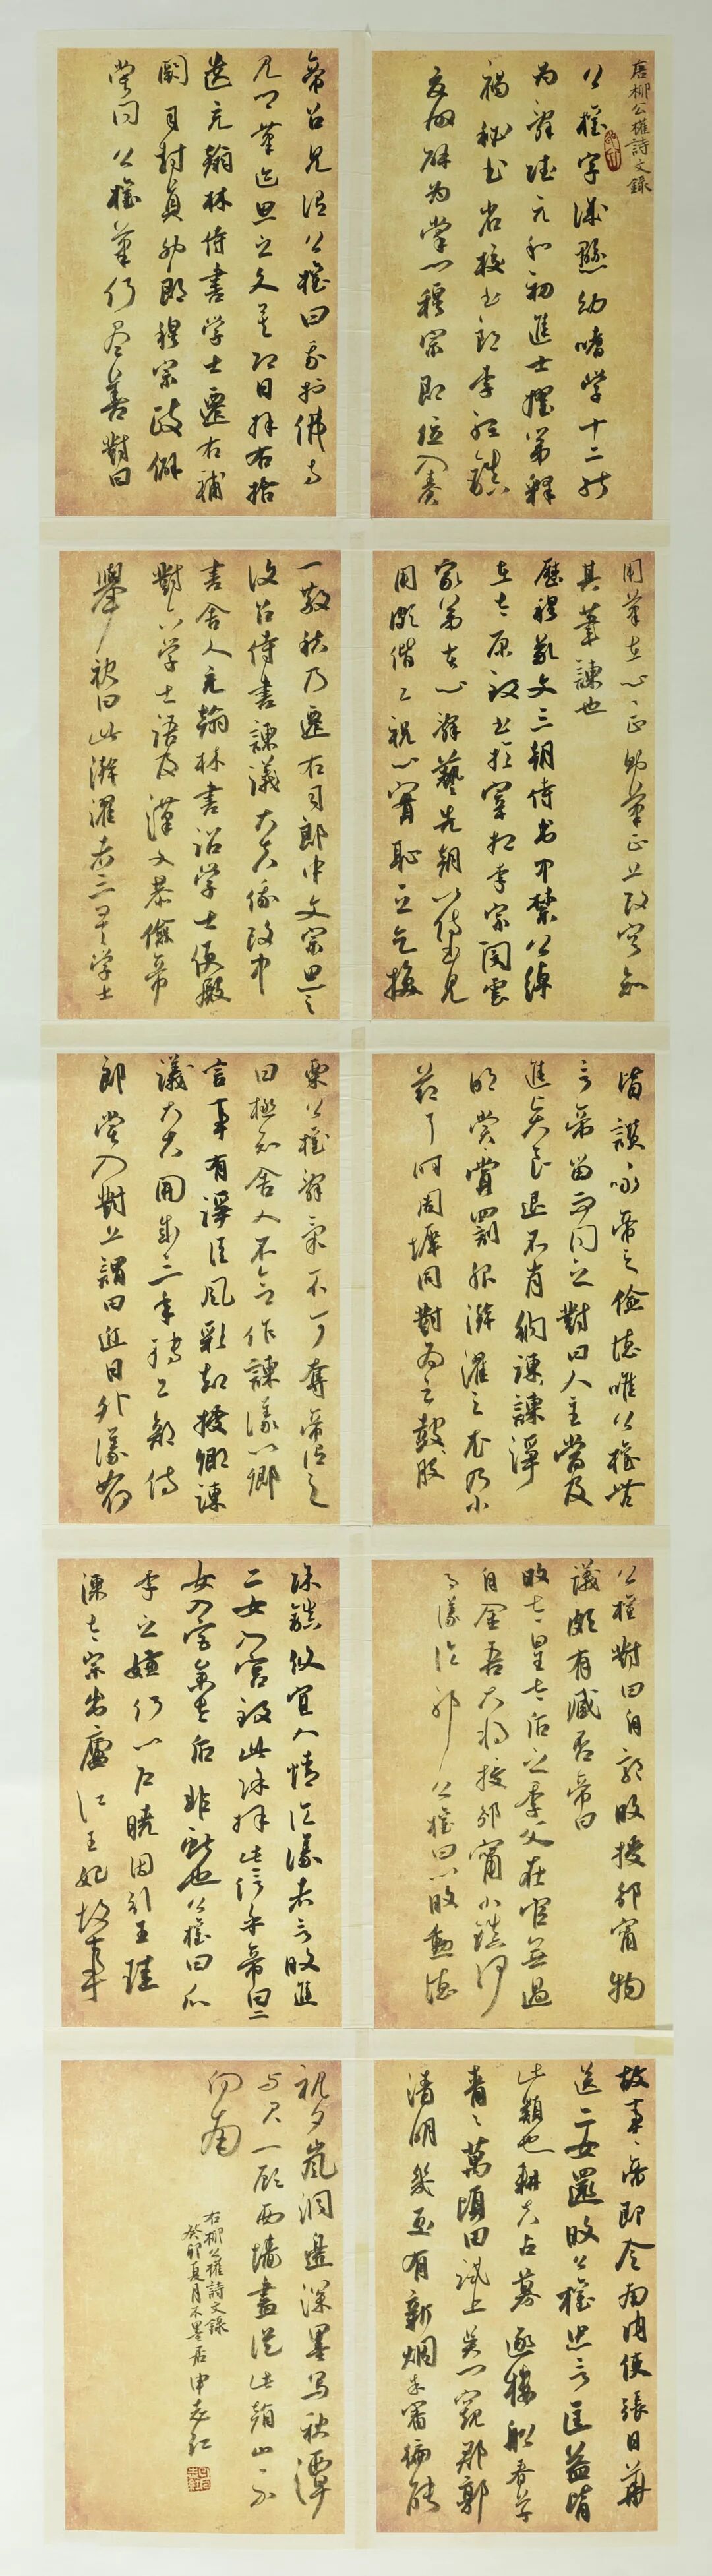 唐柳公權詩文録
公權字誠懸幼嗜學十二能
为辭賦元和初進士擢第釋
褐秘书省校书郎李聽鎮
夏州辟为掌书記穆宗即位入奏
帝召見谓公權曰我於佛寺
見卿筆迹思之久矣即日拜右拾
遗充翰林侍書学士遷右補
闕司封員外郎穆宗政僻
嘗问公權筆何尽善對曰
用筆在心心正則筆正上改容知
其筆諫也
歷穆敬文三朝侍书中禁公綽
在太原致书於宰相李宗閔云
家弟苦心辭藝先朝以侍书見
用頗偕工祝心實恥之乞换
一散秩乃遷右司郎中文宗思之
復召侍書諫議大夫俄改中
書舍人充翰林書诏学士便殿
對六学士語及漢文恭儉帝
舉袂曰此澣濯者三矣学士
皆讚咏帝之儉德唯公權无
言帝留而问之對曰人主當及
進賢良退不肖納諫諍
明賞罰服澣濯之衣乃小
節耳时周墀同對为之股
栗公權辭氣不可奪帝谓之
曰極知舍人不合作諫議以卿
言事有諍臣風彩却授卿諫
議大夫開成三年轉工部侍
郎嘗入對上謂曰近日外議如何
公權對曰自郭旼授邠甯物
議頗有臧否帝曰
旼是太后之季父在官無過
自金吾大将授邠甯小鎮何
事議论耶公權曰以旼勳德
除鎮攸宜人情论議者言旼進
二女入宫致此除拜此信乎帝曰二
女入宫參太后非献也公權曰瓜
李之嫌何以户曉因引王珪
諫太宗出廬江王妃故事
故事帝即令南内使張日華
送二女還旼公權忠言匡益皆
此類也耕夫占募逐樓船春草
青青萬頃田試上吳门窺郡郭
清明幾處有新烟未審徧能
於夕嵐洞邊深墨写秋潭
与君一顧西墻畫從此看山不
向南
右柳公權詩文錄
癸卯夏月不墨居申太红